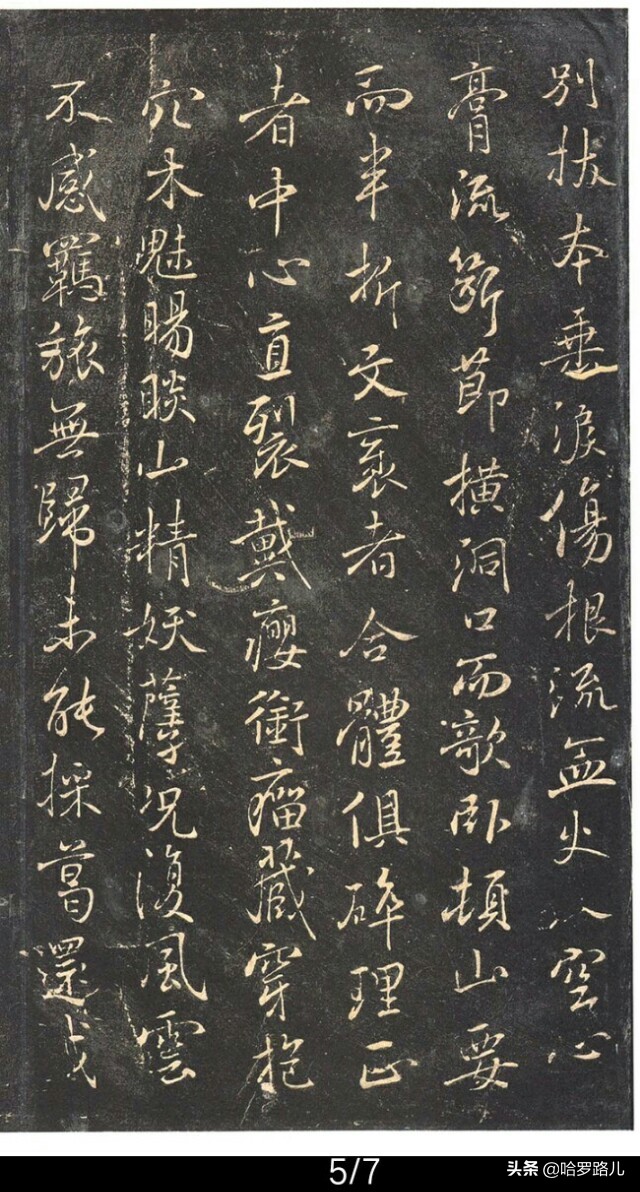 別拔本垂淚傷根流血火入空心
膏流斷節橫洞口而欹臥頓山要
而半折文袤者合體俱碎理正
者中心直裂戴癭銜瘤藏穿抱
穴木魅睗睒山精妖孽況復風雲
不感羈旅無歸未能採葛還成
5/7
头条 @哈罗路儿